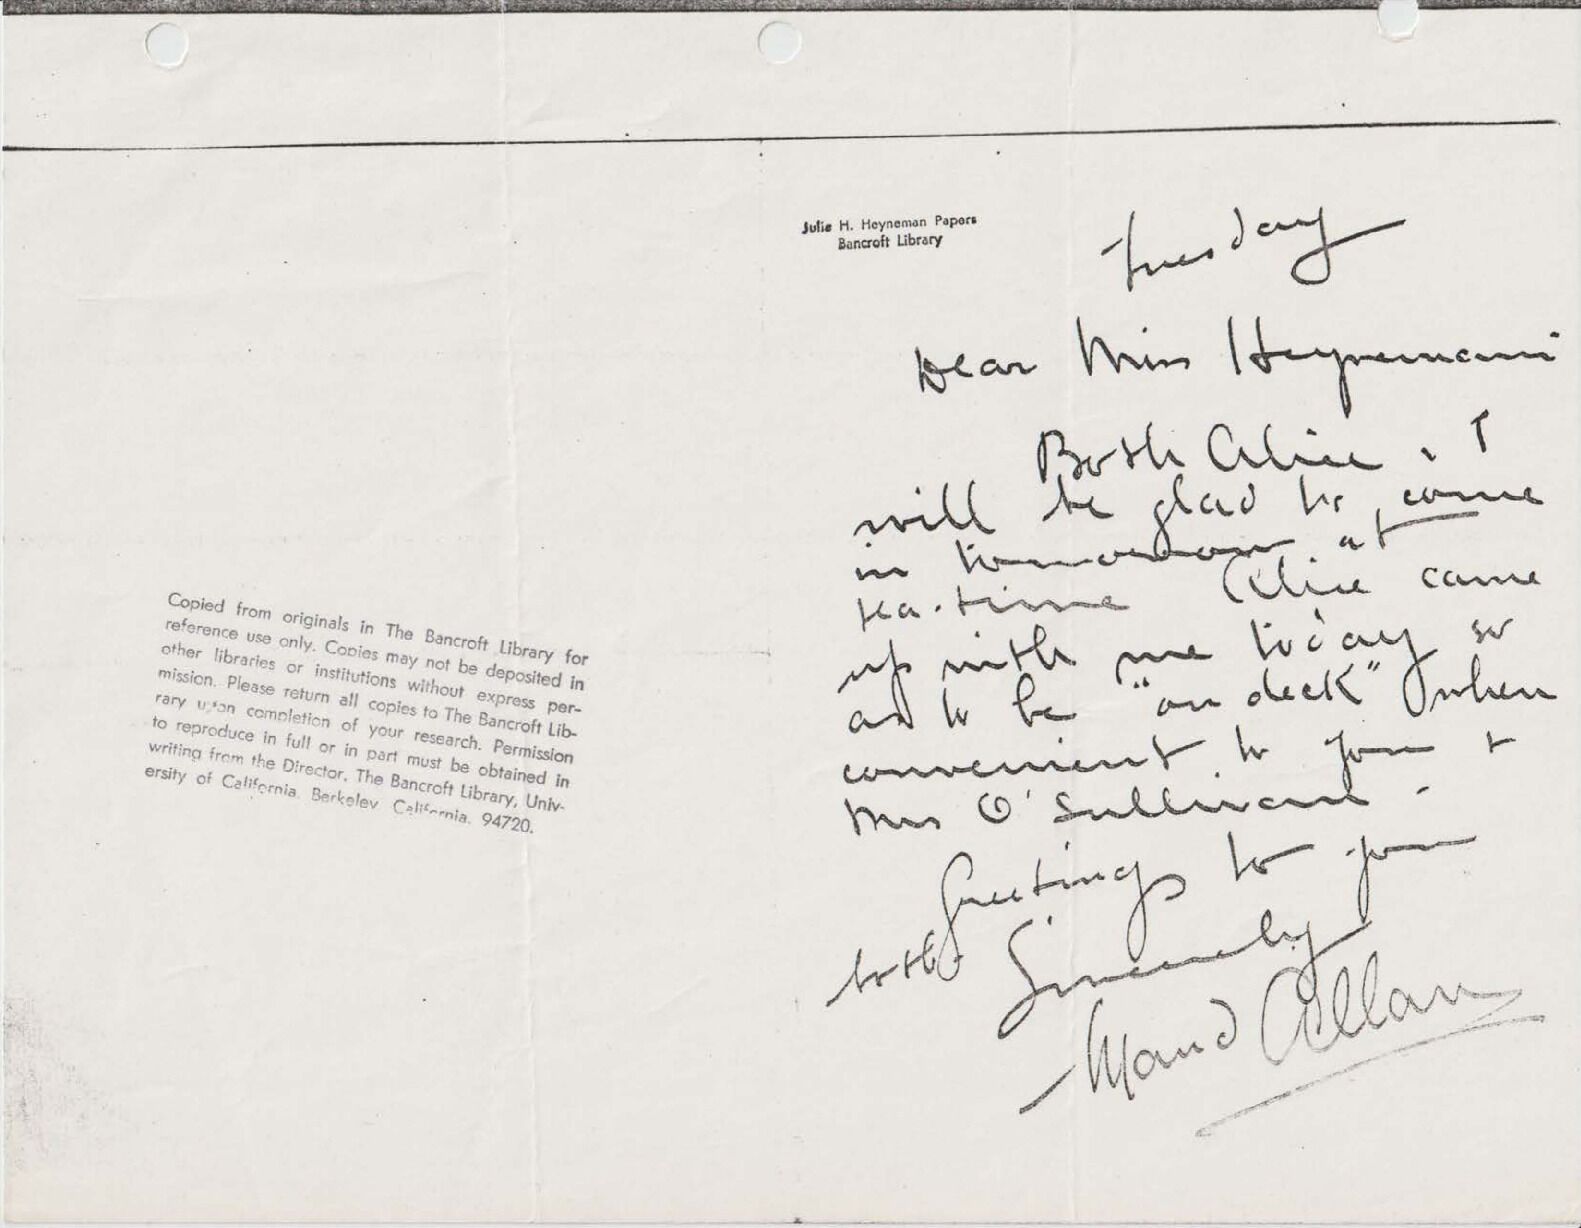 Julie H. Heyneman Papers
Bancroft Library
Tuesday
Dear Miss Heynemann
Both Alice & I
will be glad to come
in tomorrow at
tea-time Alice came
up with me today so
as to be "on deck" when
convenient to you &
Mrs O'Sullivan.
Greetings to you
both. Sincerely
Maud Allan
Copied from originals in The Bancroft Library for
reference use only. Copies may not be deposited in
other libraries or institutions without express per-
mission. Please return all copies to The Bancroft Lib-
rary upon completion of your research. Permission
to reproduce in full or in part must be obtained in
writing from the Director, The Bancroft Library, Univ-
ersity of California, Berkeley, California, 94720.